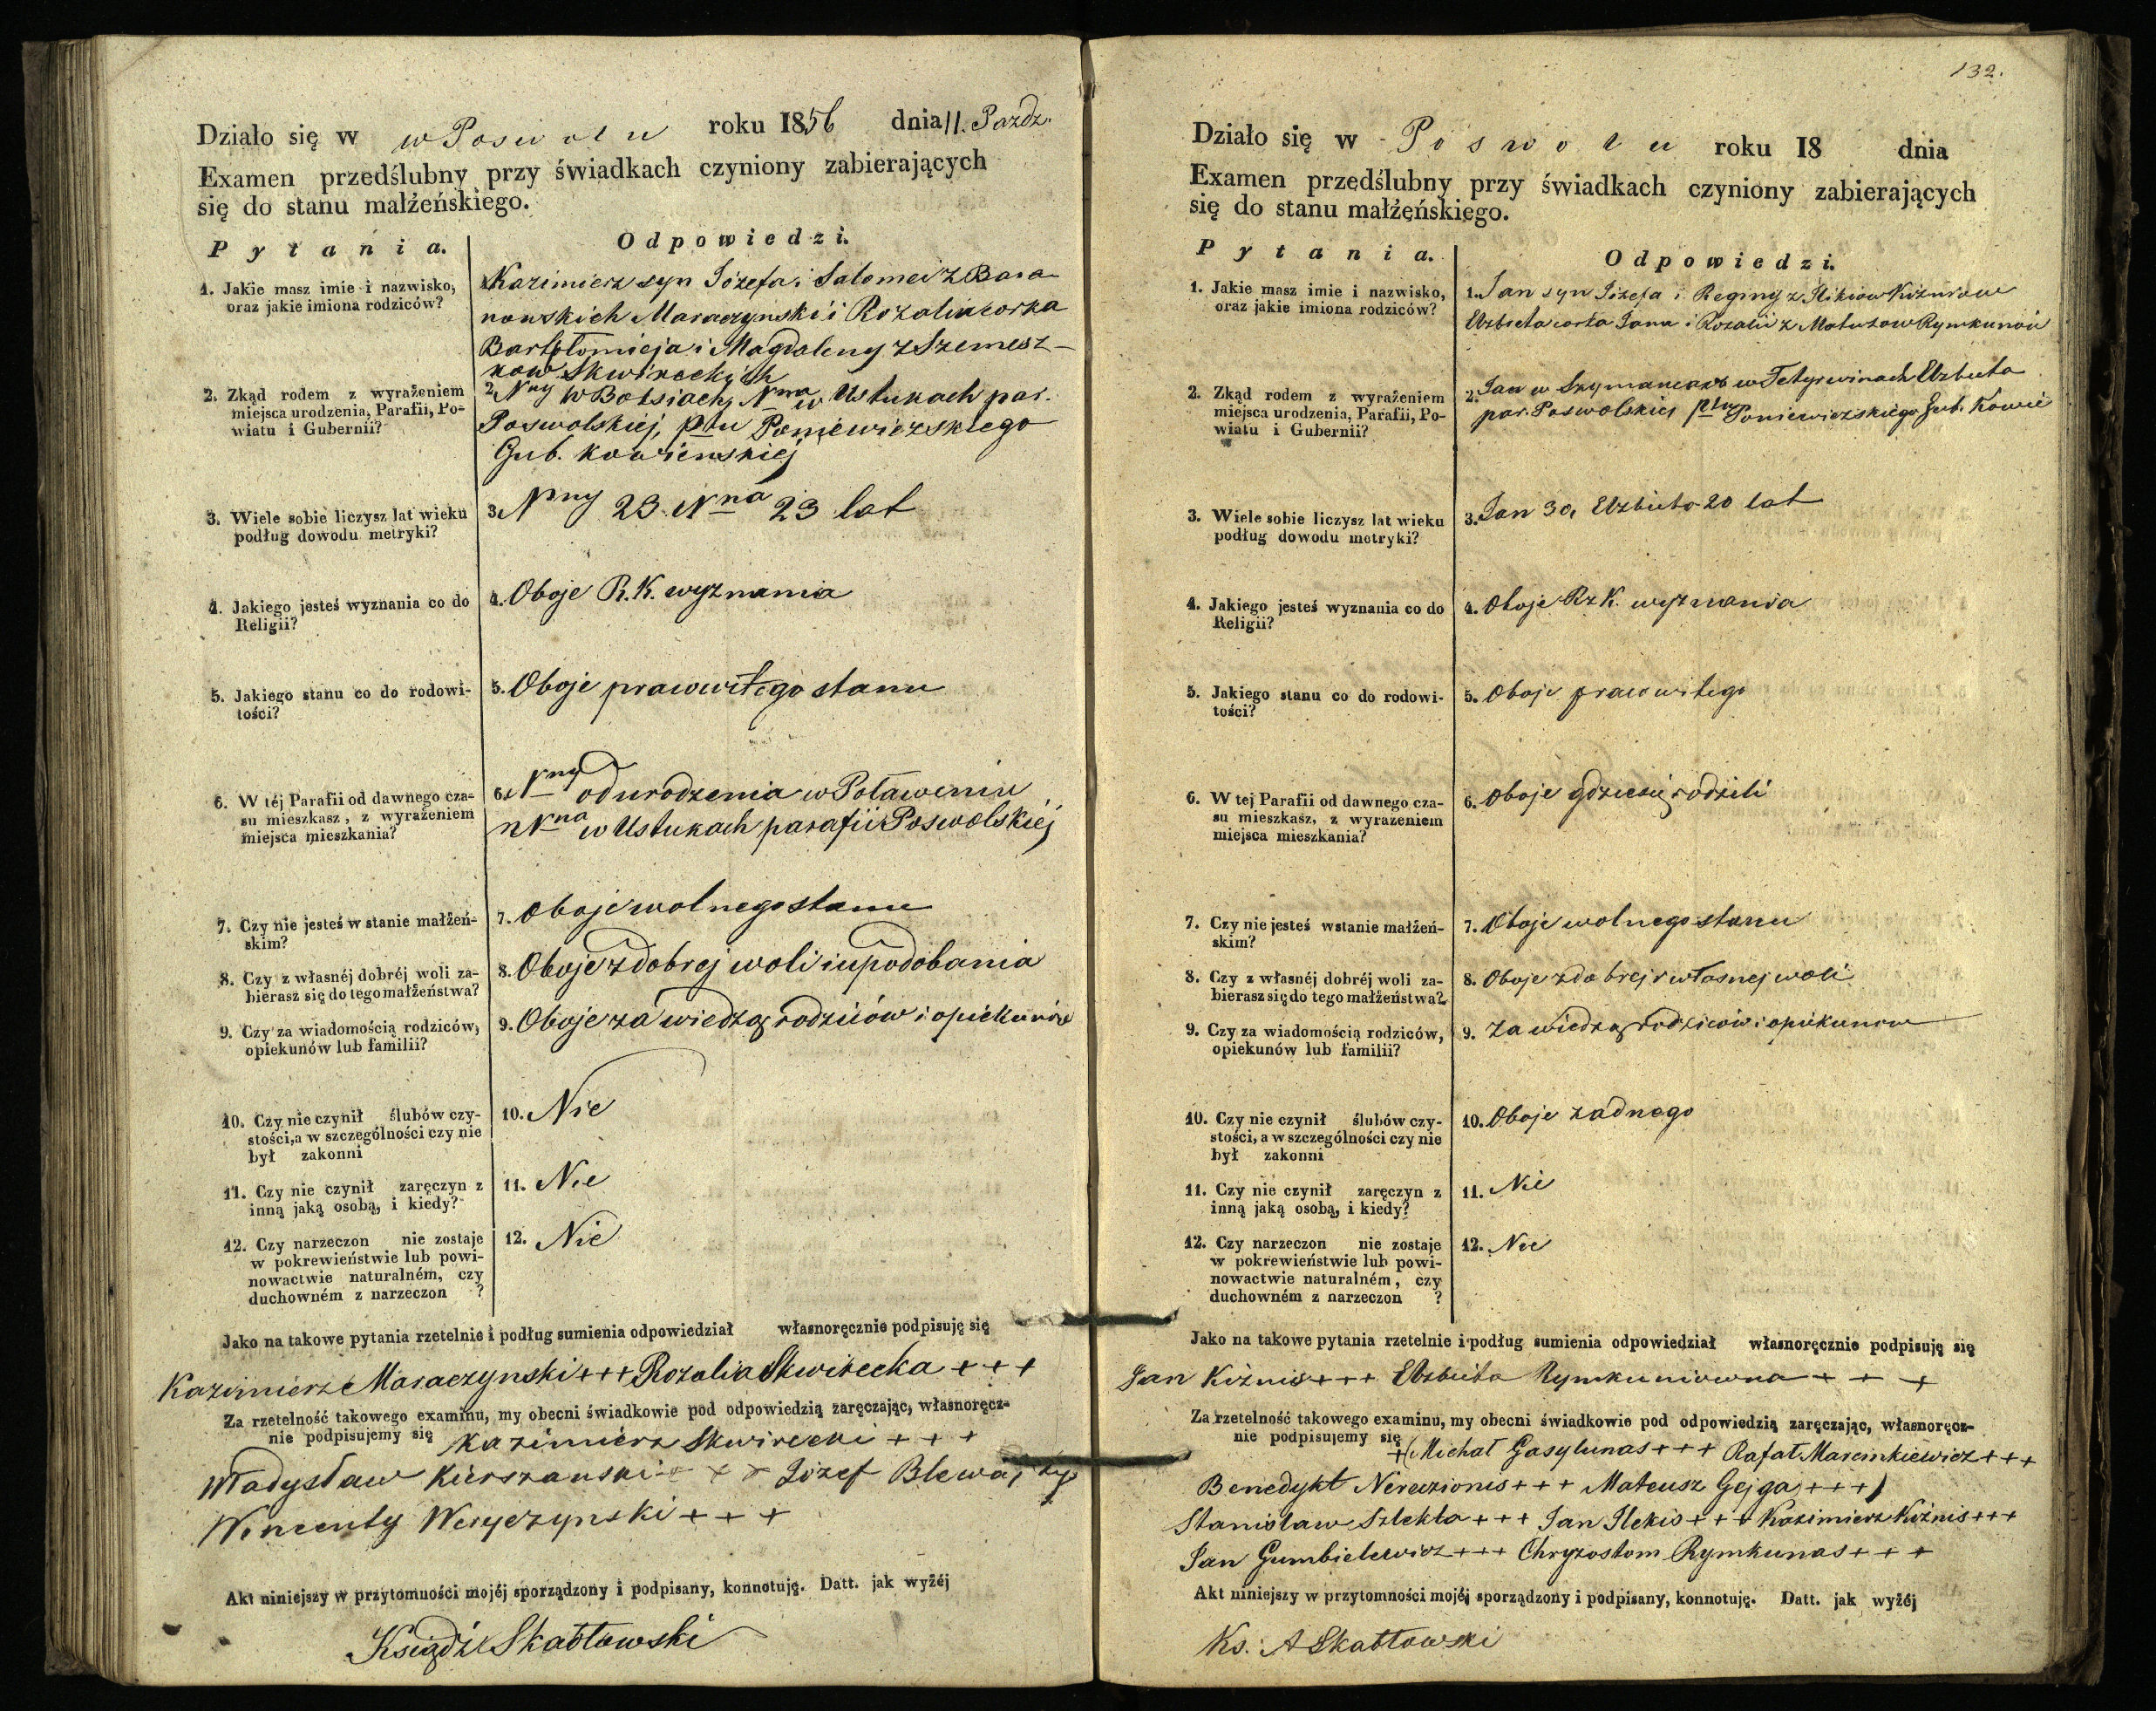 Działo się w w Poswolu roku 1856 dnia 11. Pazdz.
Examen przedślubny przy świadkach czyniony zabierających
się do stanu małżeńskiego.
Pytania.
Odpowiedzi.
1. Jakie masz imie i nazwisko,
oraz jakie imiona rodziców?
Kazimierz syn Józefa i Salomei z Bara
nowskich Maraczynski i Rozalia corka
Bartłomieja i Magdaleny z Szemesz-
kow Skwireckich
2. Zkąd rodem z wyrażeniem
miejsca urodzenia, Parafii, Po-
wiatu i Gubernii?
2. Nny w Bətsiach, Nna w Ustukach par.
Poswolskiej, ptu Poniewiezskiego
Gub. kowienskiej
3. Wiele sobie liczysz lat wieku
podług dowodu metryki?
3. Nny 23 Nna 23 lat
4. Jakiego jesteś wyznania co do
Religii?
4. Oboje R. K. wyznania
5. Jakiego stanu co do rodowi-
tości?
5. Oboje prawowitego stanu
6. W téj Parafii od dawnego cza-
su mieszkasz, z wyrażeniem
miejsca mieszkania?
6. Nny od urodzenia w Poławeniu
Nna w Ustukach parafii Poswolskiej
7. Czy nie jesteś w stanie małżeń-
skim?
7. Oboje wolnego stanu
8. Czy z własnéj dobréj woli za-
bierasz się do tego małżeństwa?
8. Oboje z dobrej woli i upodobania
9. Czy za wiadomością rodziców,
opiekunów lub familii?
9. Oboje za wiedzą rodziców i opiekunów
10. Czy nie czynił ślubów czy-
stości, a w szczególności czy nie
był zakonni
10. Nie
11. Czy nie czynił zaręczyn z
inną jaką osobą, i kiedy?
11. Nie
12. Czy narzeczon nie zostaje
w pokrewieństwie lub powi-
nowactwie naturalném, czy
duchowném z narzeczon ?
12. Nie
Jako na takowe pytania rzetelnie i podług sumienia odpowiedział własnoręcznie podpisuję się
Kazimierz Maraczynski +++ Rozalia Skwirecka +++
Za rzetelność takowego examinu, my obecni świadkowie pod odpowiedzią zaręczając, własnoręcz-
nie podpisujemy się Kazimierz Skwirecki + + +
Władysław Kierszanski + x x Józef Blewa
Wincenty Weryczynski + + +
Akt niniejszy w przytomności mojéj sporządzony i podpisany, konnotuję. Datt. jak wyżéj
Ksiądz Skabłowski
132.
Działo się w Poswolu roku 18 dnia
Examen przedślubny przy świadkach czyniony zabierających
się do stanu małżeńskiego.
Pytania.
Odpowiedzi.
1. Jakie masz imie i nazwisko,
oraz jakie imiona rodziców?
1. Jan syn Józefa i Reginy z Ilikiow Kiżnisow
Elzbieta corka Jana i Rozalii z Matuzow Rymkunow
2. Zkąd rodem z wyrażeniem
miejsca urodzenia, Parafii, Po-
wiatu i Gubernii?
2. Jan w Szymancach w Tetyrwinach Elzbieta
par. Poswolskiej ptu Poniewiezskiego Gub. Kowie
3. Wiele sobie liczysz lat wieku
podług dowodu metryki?
3. Jan 30, Elzbieta 20 lat
4. Jakiego jesteś wyznania co do
Religii?
4. Oboje Rz K. wyznania
5. Jakiego stanu co do rodowi-
tości?
5. Oboje prawowitego
6. W tej Parafii od dawnego cza-
su mieszkasz, z wyrażeniem
miejsca mieszkania?
6. Oboje gdzie się rodzili
7. Czy nie jesteś w stanie małżeń-
skim?
7. Oboje wolnego stanu
8. Czy z własnéj dobréj woli za-
bierasz się do tego małżeństwa?
8. Oboje z dobrej i własnej woli
9. Czy za wiadomością rodziców,
opiekunów lub familii?
9. Za wiedzą rodzicow i opiekunow
10. Czy nie czynił ślubów czy-
stości, a w szczególności czy nie
był zakonni
10. Oboje zadnego
11. Czy nie czynił zaręczyn z
inną jaką osobą, i kiedy?
11. Nie
12. Czy narzeczon nie zostaje
w pokrewieństwie lub powi-
nowactwie naturalném, czy
duchowném z narzeczon ?
12. Nie
Jako na takowe pytania rzetelnie i podług sumienia odpowiedział własnoręcznie podpisuję się
Jan Kiżnis +++ Elzbieta Rymkuniowna + + +
Za rzetelność takowego examinu, my obecni świadkowie pod odpowiedzią zaręczając, własnoręcz-
nie podpisujemy się
+(Michał Gasylunas +++ Rafał Marcinkiewicz +++
Benedykt Nireuzionis +++ Mateusz Gejga +++)
Stanisław Szlekta +++ Jan Ilekis +++ Kazimierz Kiżnis +++
Jan Gumbielewicz +++ Chryzostom Rymkunas + + +
Akt niniejszy w przytomności mojéj sporządzony i podpisany, konnotuję. Datt. jak wyżéj
Ks. A Skabłowski